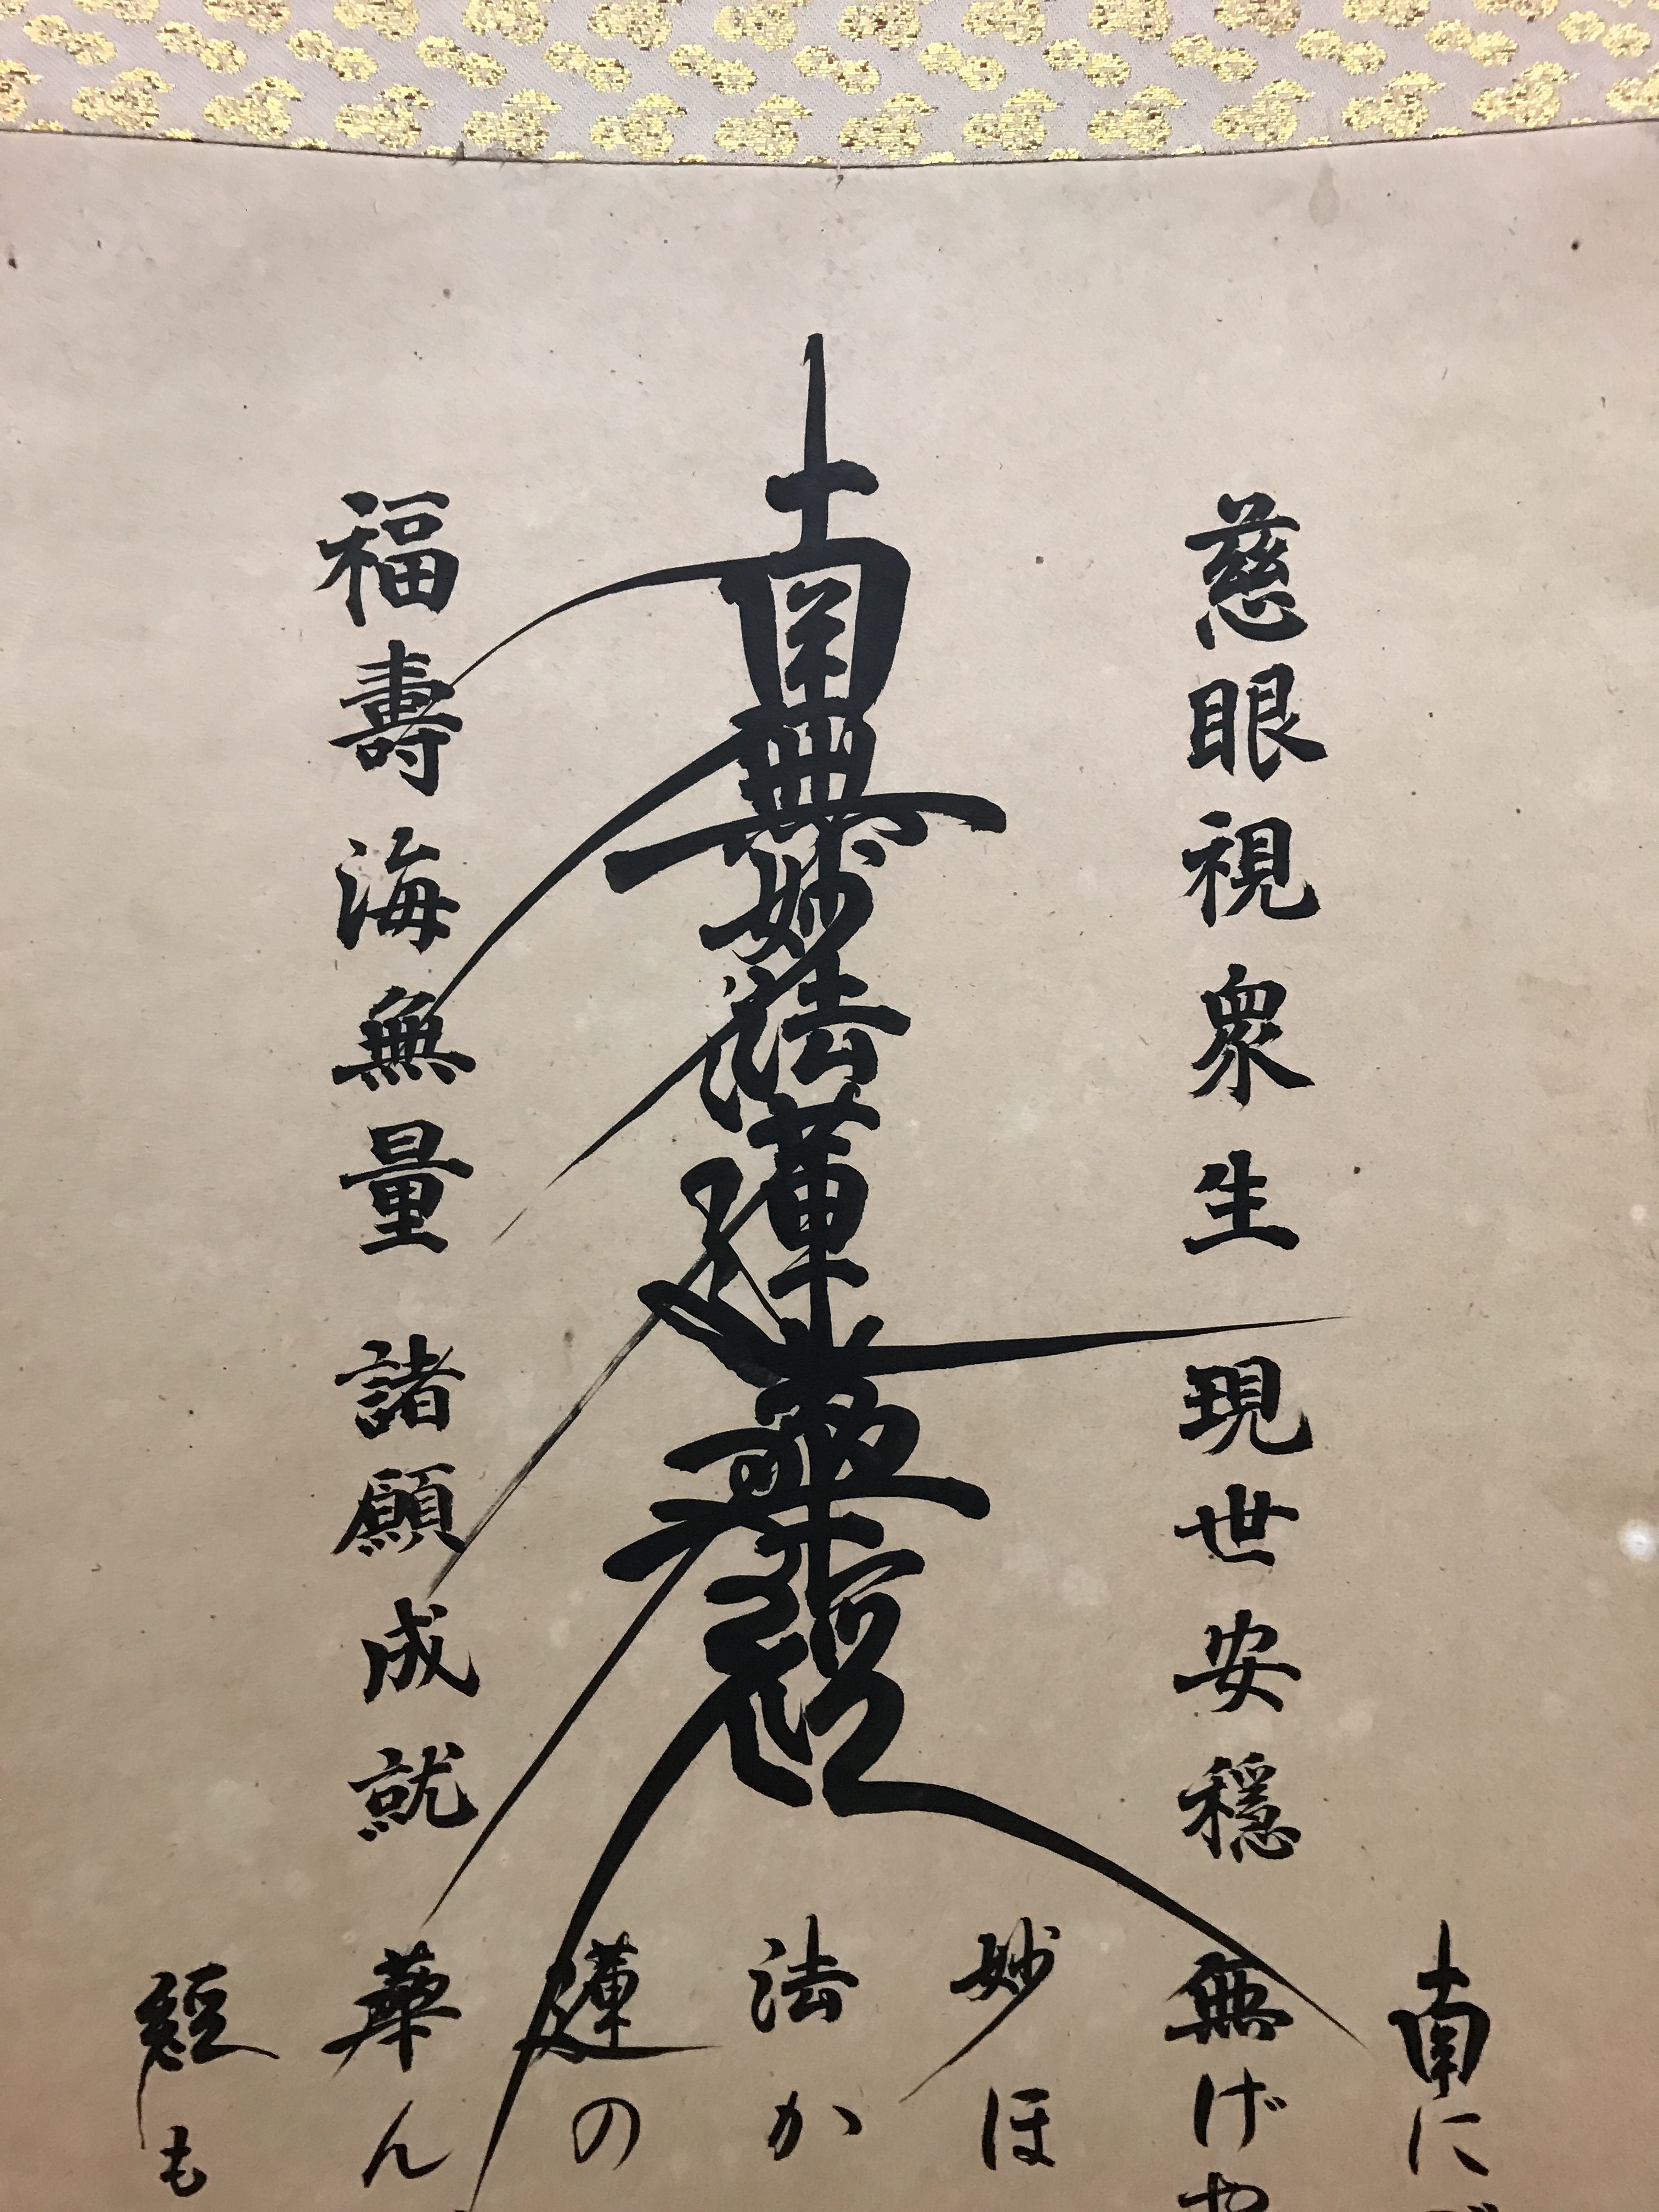 慈眼視衆生 現世安穏
南無妙法蓮華経
福壽海無量 諸願成就
南に
無げや
妙ほ
法か
蓮の
華ん
経も